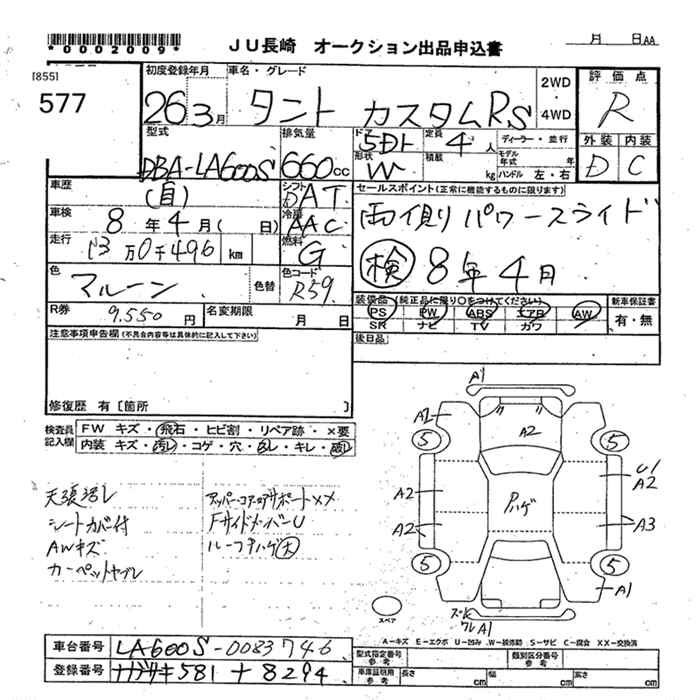 *0002009*
JU長崎 オークション出品申込書
月 日AA
[855]
577
初度登録年月
26 3月
車名・グレード
タント カスタムRS
2WD
・
4WD
評価点
R
外装 内装
D C
型式
DBA-LA600S
排気量
660cc
ドア
5Dドト
定員
4人
ディーラー・並行
形状
W
積載
kg
モデル年式 年
ハンドル 左・右
車歴
(自)
シフト
DAT
セールスポイント(正常に機能するものに限ります)
両側パワースライド
検 8年4月
車検
8年4月( 日)
冷房
AAC
走行
13万0千496 km
燃料
G
色
マルーン
色替
色コード
R59
R券
9,550円
名変期限
月 日
装備品(純正品に限り○をつけてください)
PS PW ABS エアB AW
SR ナビ TV カワ
新車保証書
有・無
後日品
注意事項申告欄(不具合内容等は具体的に記入して下さい)
修復歴 有〔箇所 〕
検査員記入欄
FW キズ・飛石・ヒビ割・リペア跡・×要
内装 キズ・汚レ・コゲ・穴・色レ・キレ・破レ
天張汚レ
シートカバー付
AWキズ
カーペットヤブレ
アッパー・コアサポートXX
FサイドメンバーU
ルーフPハゲ(大)
A1
A2
A2
5
5
U1
A2
A2
Pハゲ
A2
A3
5
5
A1
スペア
A1
A-キズ E-エクボ U-凹み W-板修跡 S-サビ C-腐食 XX-交換済
車台番号
LA600S-0083746
登録番号
ナガサキ581 ナ8294
型式指定番号
参考
類別区分番号
参考
車庫証明用
参考
長さ cm
幅 cm
高さ cm